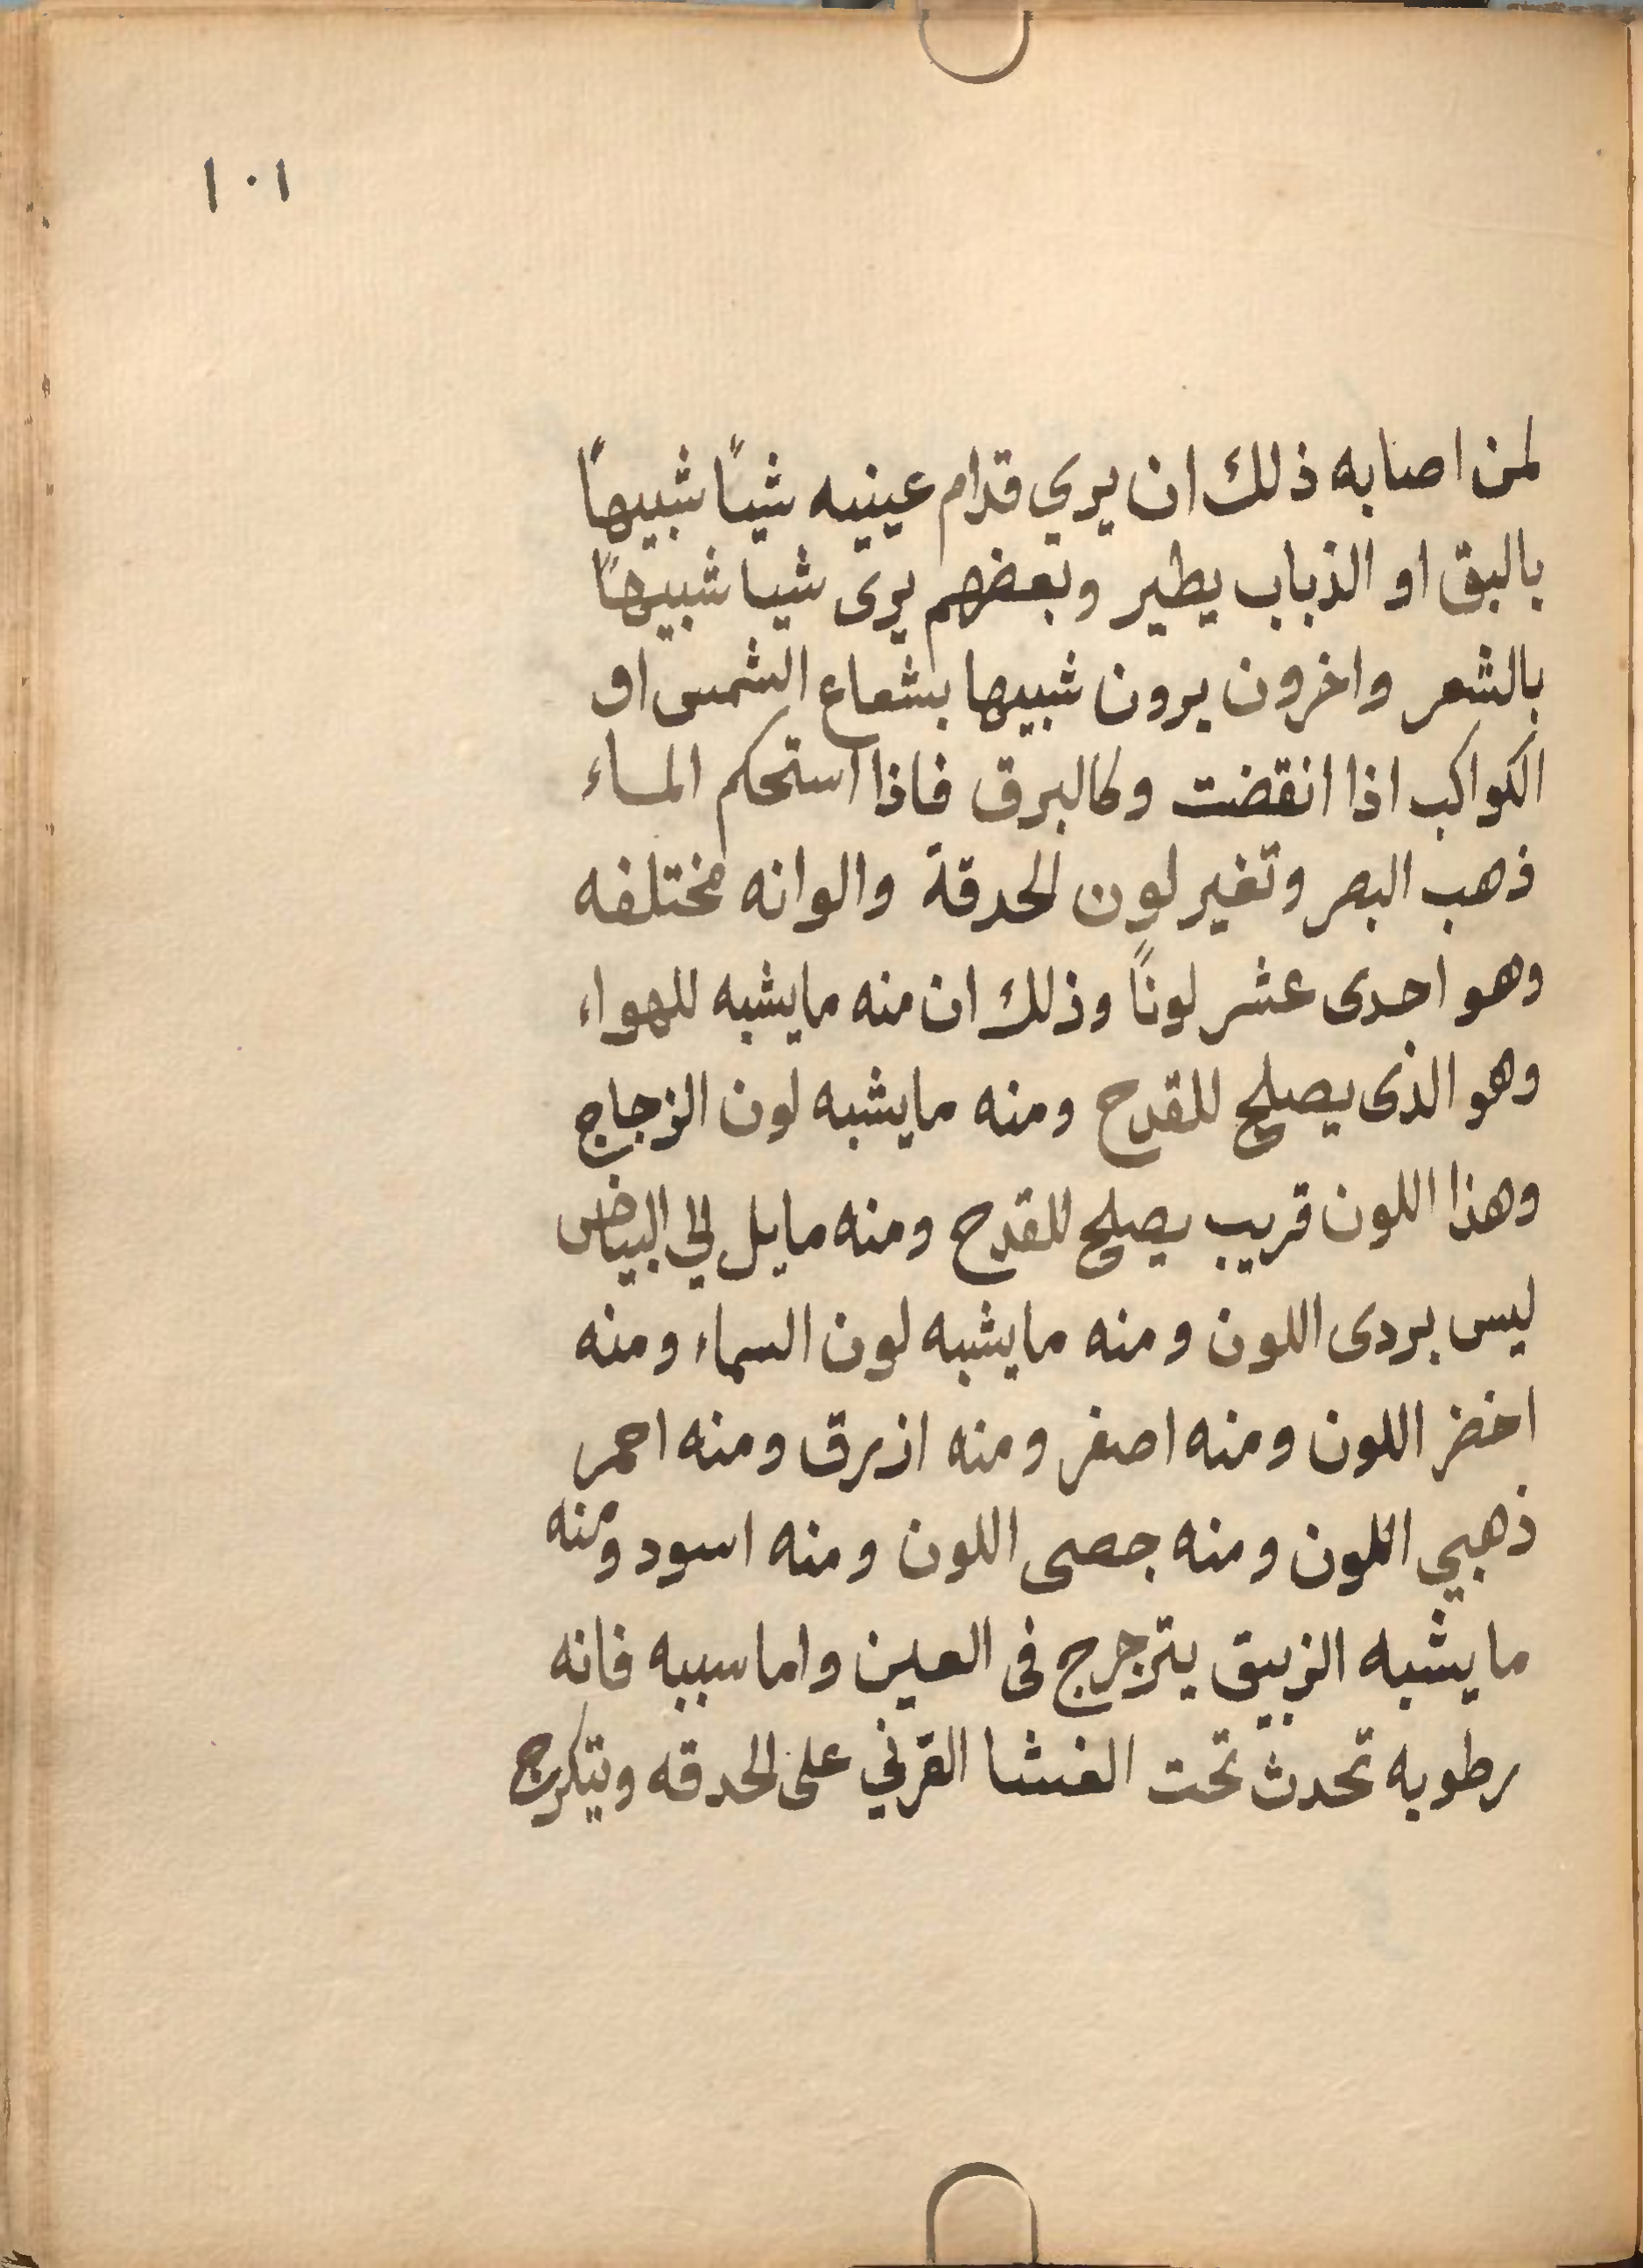 ١٠١
لمن اصابه ذلك ان يري قدام عينيه شياً شبيهاً
بالبق او الذباب يطير وبعضهم يرى شيا شبيهاً
بالشعر واخرون يرون شبيها بشعاع الشمس او
الكواكب اذا انقضت وكالبرق فاذا استحكم الماء
ذهب البصر وتغير لون الحدقة والوانه مختلفه
وهو احدى عشر لوناً وذلك ان منه مايشبه للهواء
وهو الذى يصلح للقدح ومنه مايشبه لون الزجاج
وهذا اللون قريب يصلح للقدح ومنه مايل الي البياض
ليس بردى اللون ومنه مايشبه لون السماء ومنه
اخضر اللون ومنه اصفر ومنه ازرق ومنه احمر
ذهبي اللون ومنه جصى اللون ومنه اسود ومنه
مايشبه الزيبق يترجرج فى العين واما سببه فانه
رطوبه تحدث تحت الغشا القرني على الحدقه ويتكرج